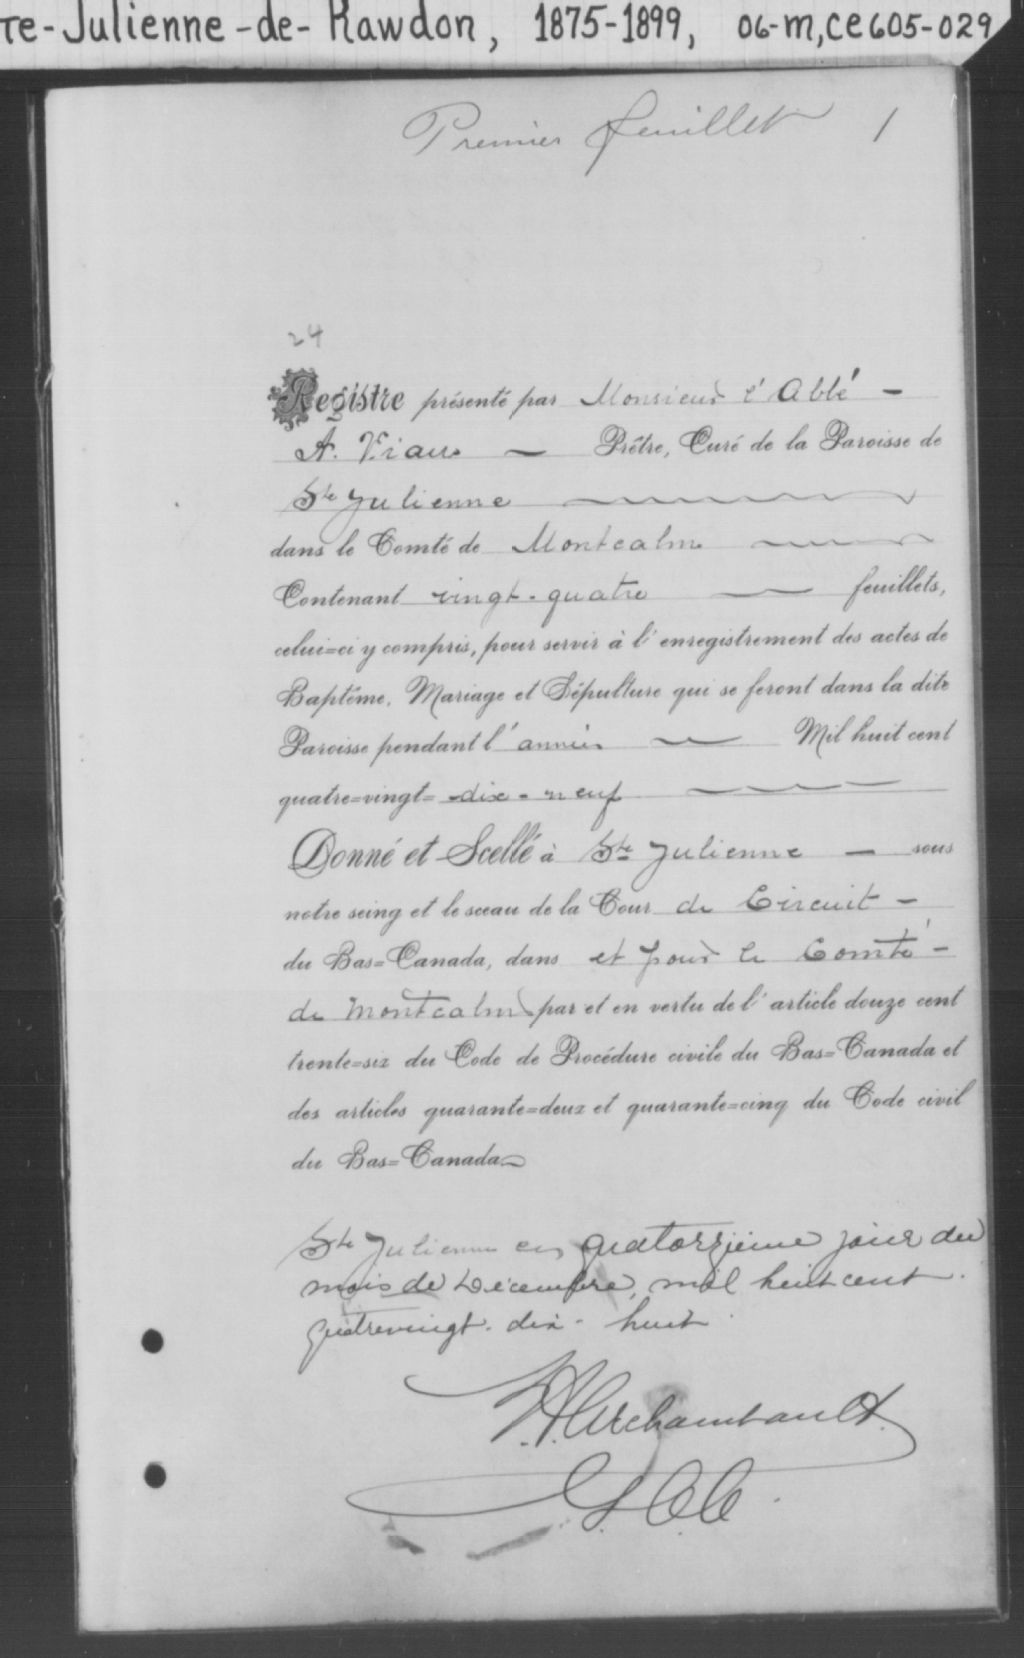 te-Julienne-de-Rawdon, 1875-1899, 06-M,CE605-029
Premier feuillet 1
24
Registre présenté par Monsieur l'Abbé -
A. Viau - Prêtre, Curé de la Paroisse de
Ste Julienne
dans le Comté de Montcalm
Contenant vingt-quatre feuillets,
celui=ci y compris, pour servir à l'enregistrement des actes de
Baptême, Mariage et Sépulture qui se feront dans la dite
Paroisse pendant l'année Mil huit cent
quatre=vingt=dix-neuf
Donné et Scellé à Ste Julienne - sous
notre seing et le sceau de la Cour de Circuit -
du Bas=Canada, dans et pour le Comté -
de Montcalm par et en vertu de l'article douze cent
trente=six du Code de Procédure civile du Bas=Canada et
des articles quarante=deux et quarante=cinq du Code civil
du Bas=Canada
Ste Julienne ce quatorzième jour du
mois de Décembre, mil huit cent
quatrevingt-dix-huit
Archambault
G.C.C.